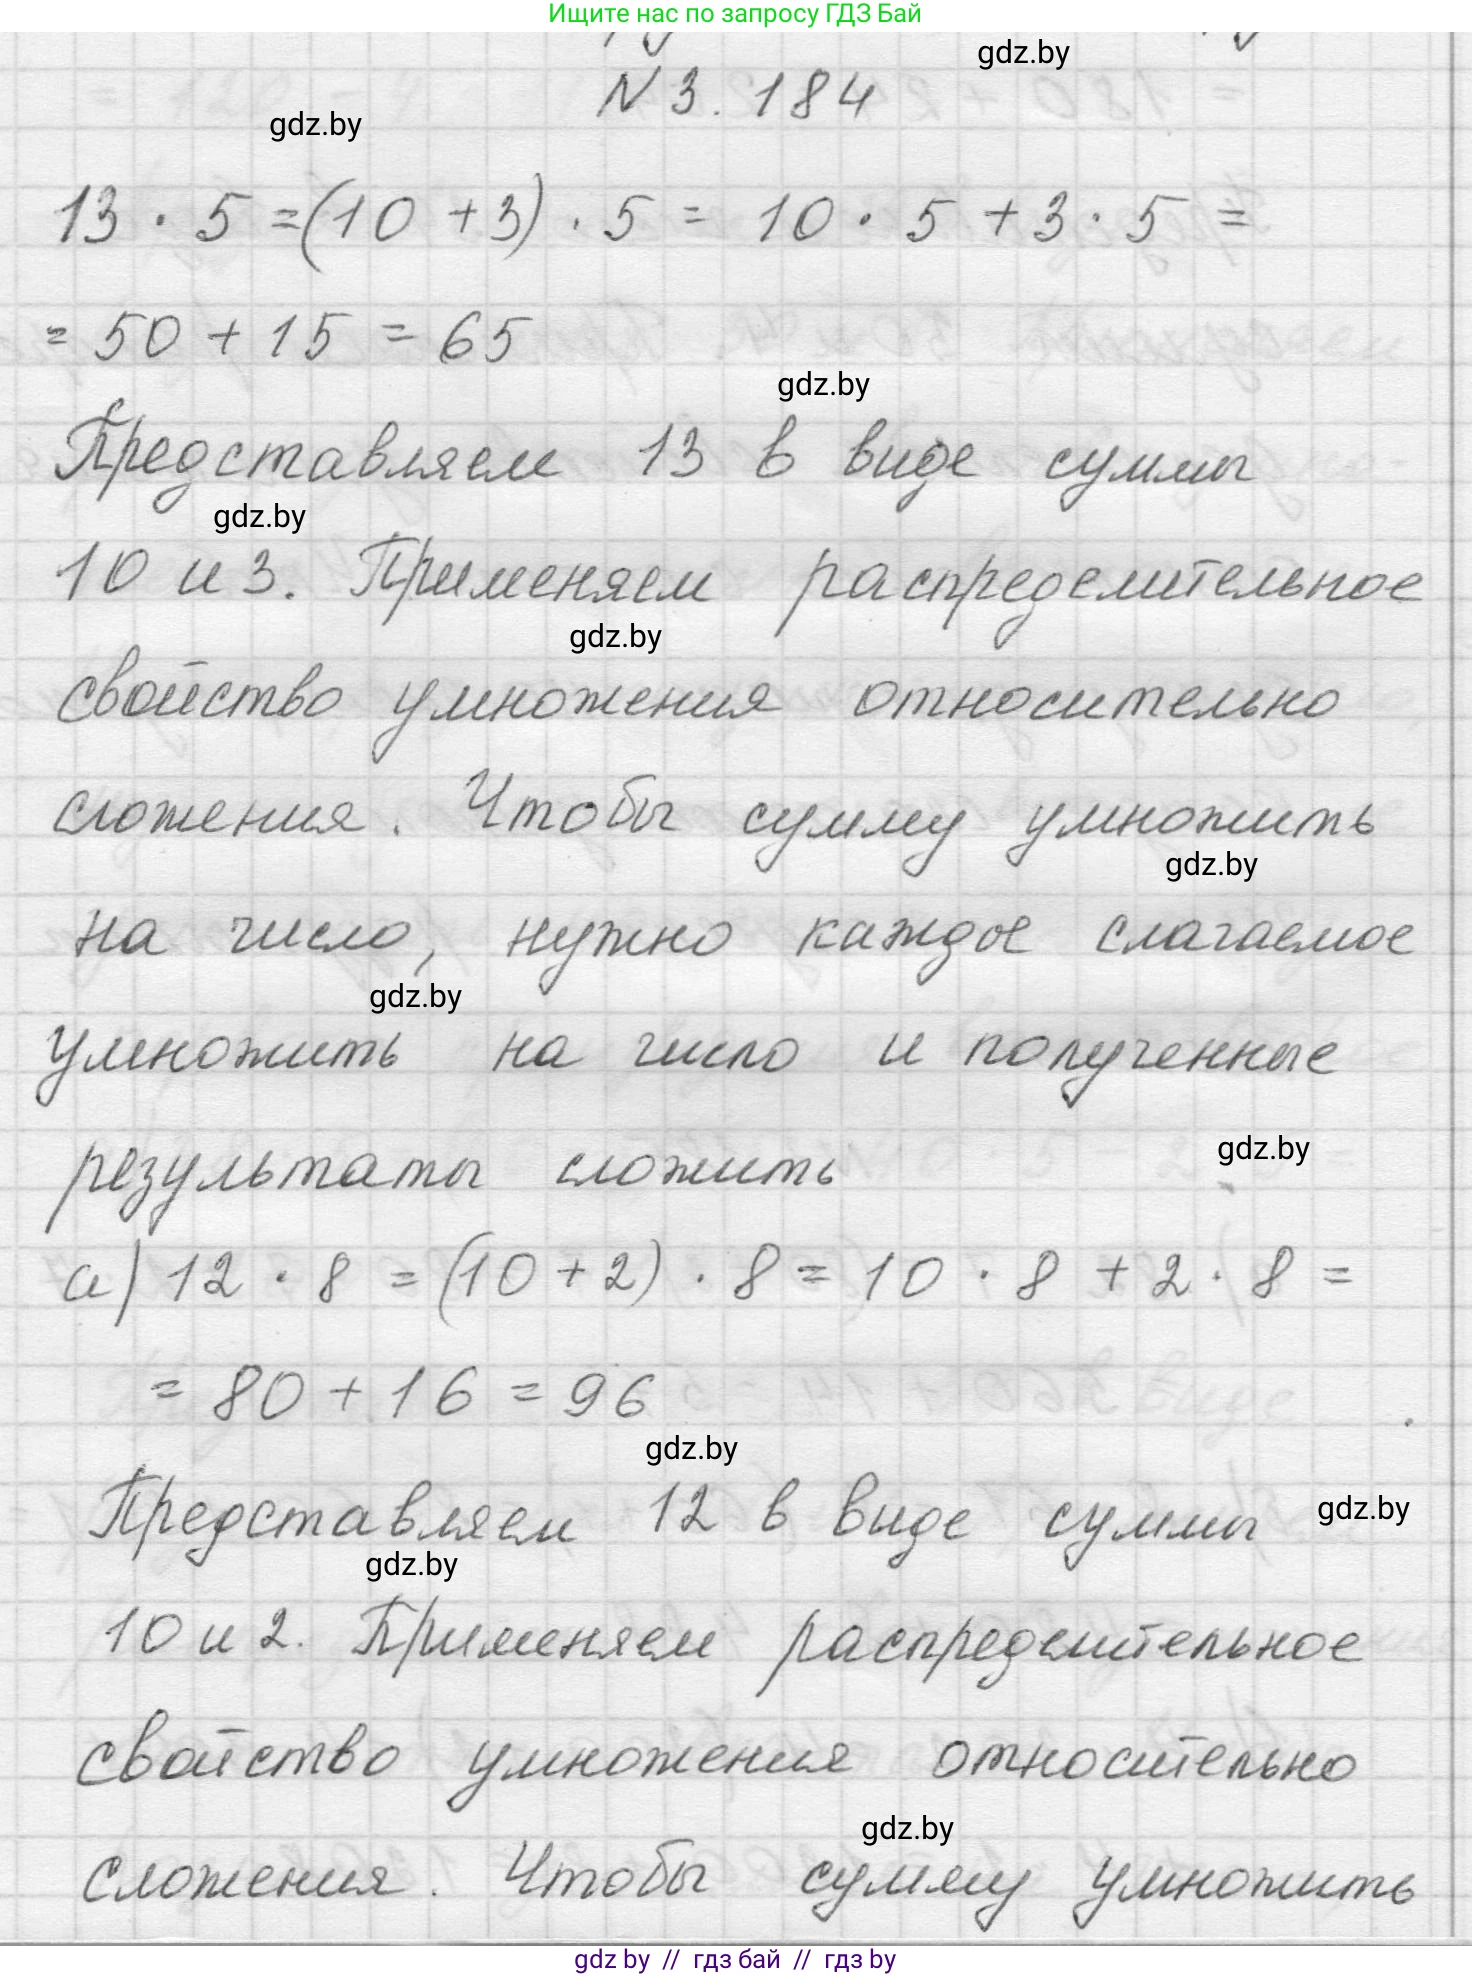 Ищите нас по запросу ГДЗ Бай
gdz.by
N 3.184
gdz.by
13 · 5 = (10 + 3) · 5 = 10 · 5 + 3 · 5 =
= 50 + 15 = 65
gdz.by
Представляем 13 в виде суммы
gdz.by
10 и 3. Применяем распределительное
gdz.by
свойство умножения относительно
сложения. Чтобы сумму умножить
gdz.by
на число, нужно каждое слагаемое
gdz.by
умножить на число и полученные
gdz.by
результаты сложить
а) 12 · 8 = (10 + 2) · 8 = 10 · 8 + 2 · 8 =
= 80 + 16 = 96
gdz.by
Представляем 12 в виде суммы
gdz.by
gdz.by
10 и 2. Применяем распределительное
свойство умножения относительно
gdz.by
сложения. Чтобы сумму умножить
gdz by // гдз бай // гдз by